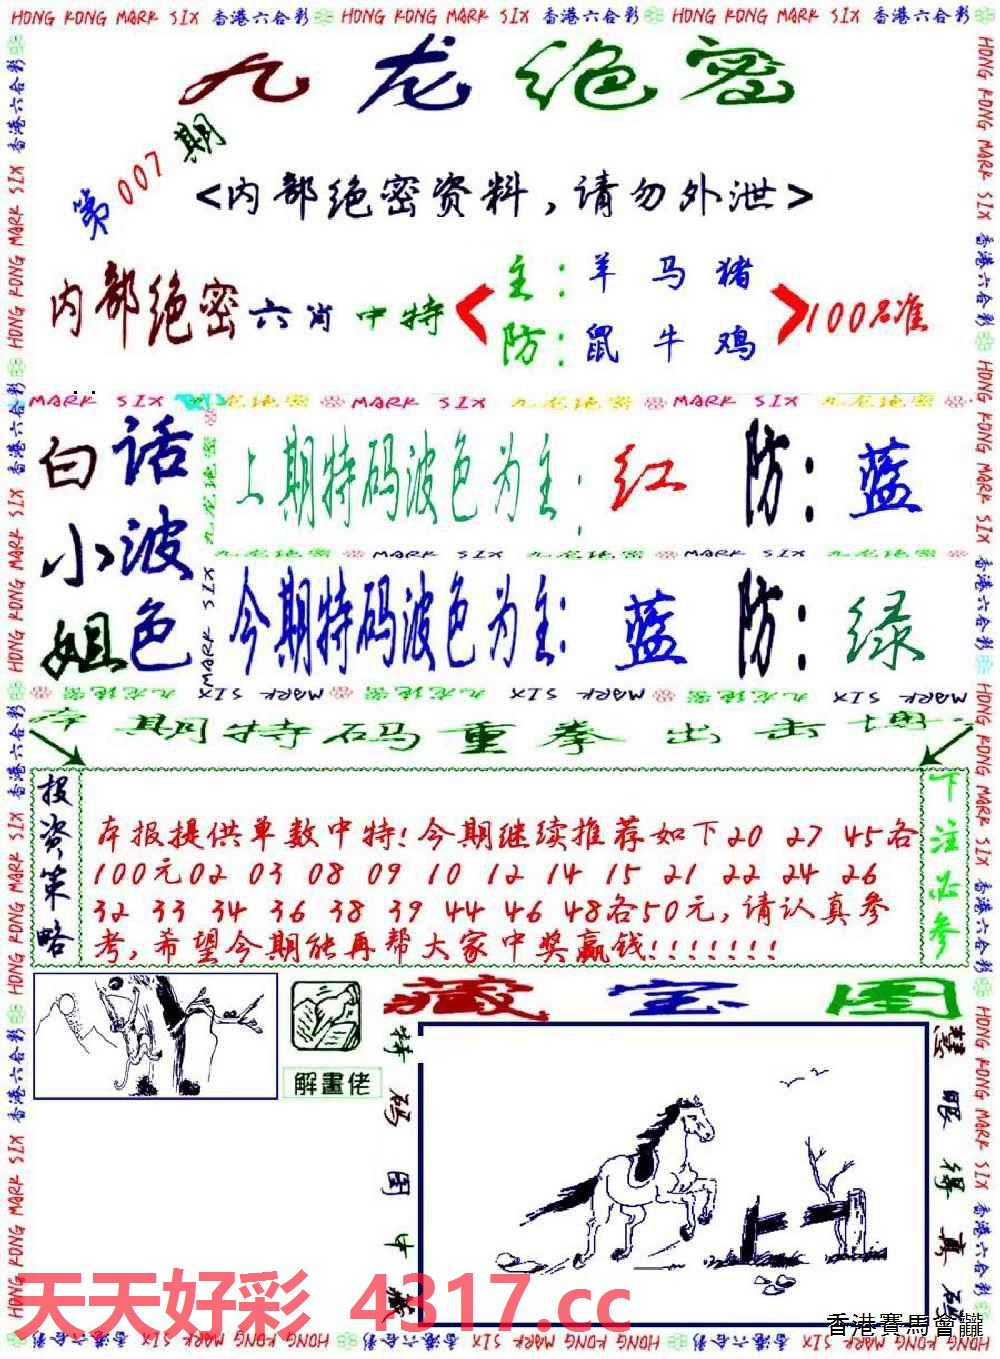 HONG KONG MARK SIX 香港六合彩 HONG KONG MARK SIX 香港六合彩 HONG KONG MARK SIX 香港六合彩
九龙绝密
第007期
<内部绝密资料,请勿外泄>
内部绝密六肖中特
主:羊 马 猪
防:鼠 牛 鸡
100%准
MARK SIX 九龙绝密 MARK SIX 九龙绝密 MARK SIX 九龙绝密
白小姐
话波色
上期特码波色为主:红 防:蓝
九龙绝密 MARK SIX 九龙绝密 MARK SIX 九龙绝密
今期特码波色为主:蓝 防:绿
MARK SIX 九龙绝密 MARK SIX 九龙绝密 MARK SIX
本期特码重拳出击
投资策略
本报提供单数中特!今期继续推荐如下20 27 45各
100元02 03 08 09 10 12 14 15 21 22 24 26
32 33 34 36 38 39 44 46 48各50元,请认真参
考,希望今期能再帮大家中奖赢钱!!!!!!!
下注必参
解畫佬
藏宝图
特码图中藏
慧眼得真码
天天好彩 4317.cc
香港賽馬會
HONG KONG MARK SIX 香港六合彩 HONG KONG MARK SIX 香港六合彩 HONG KONG MARK SIX